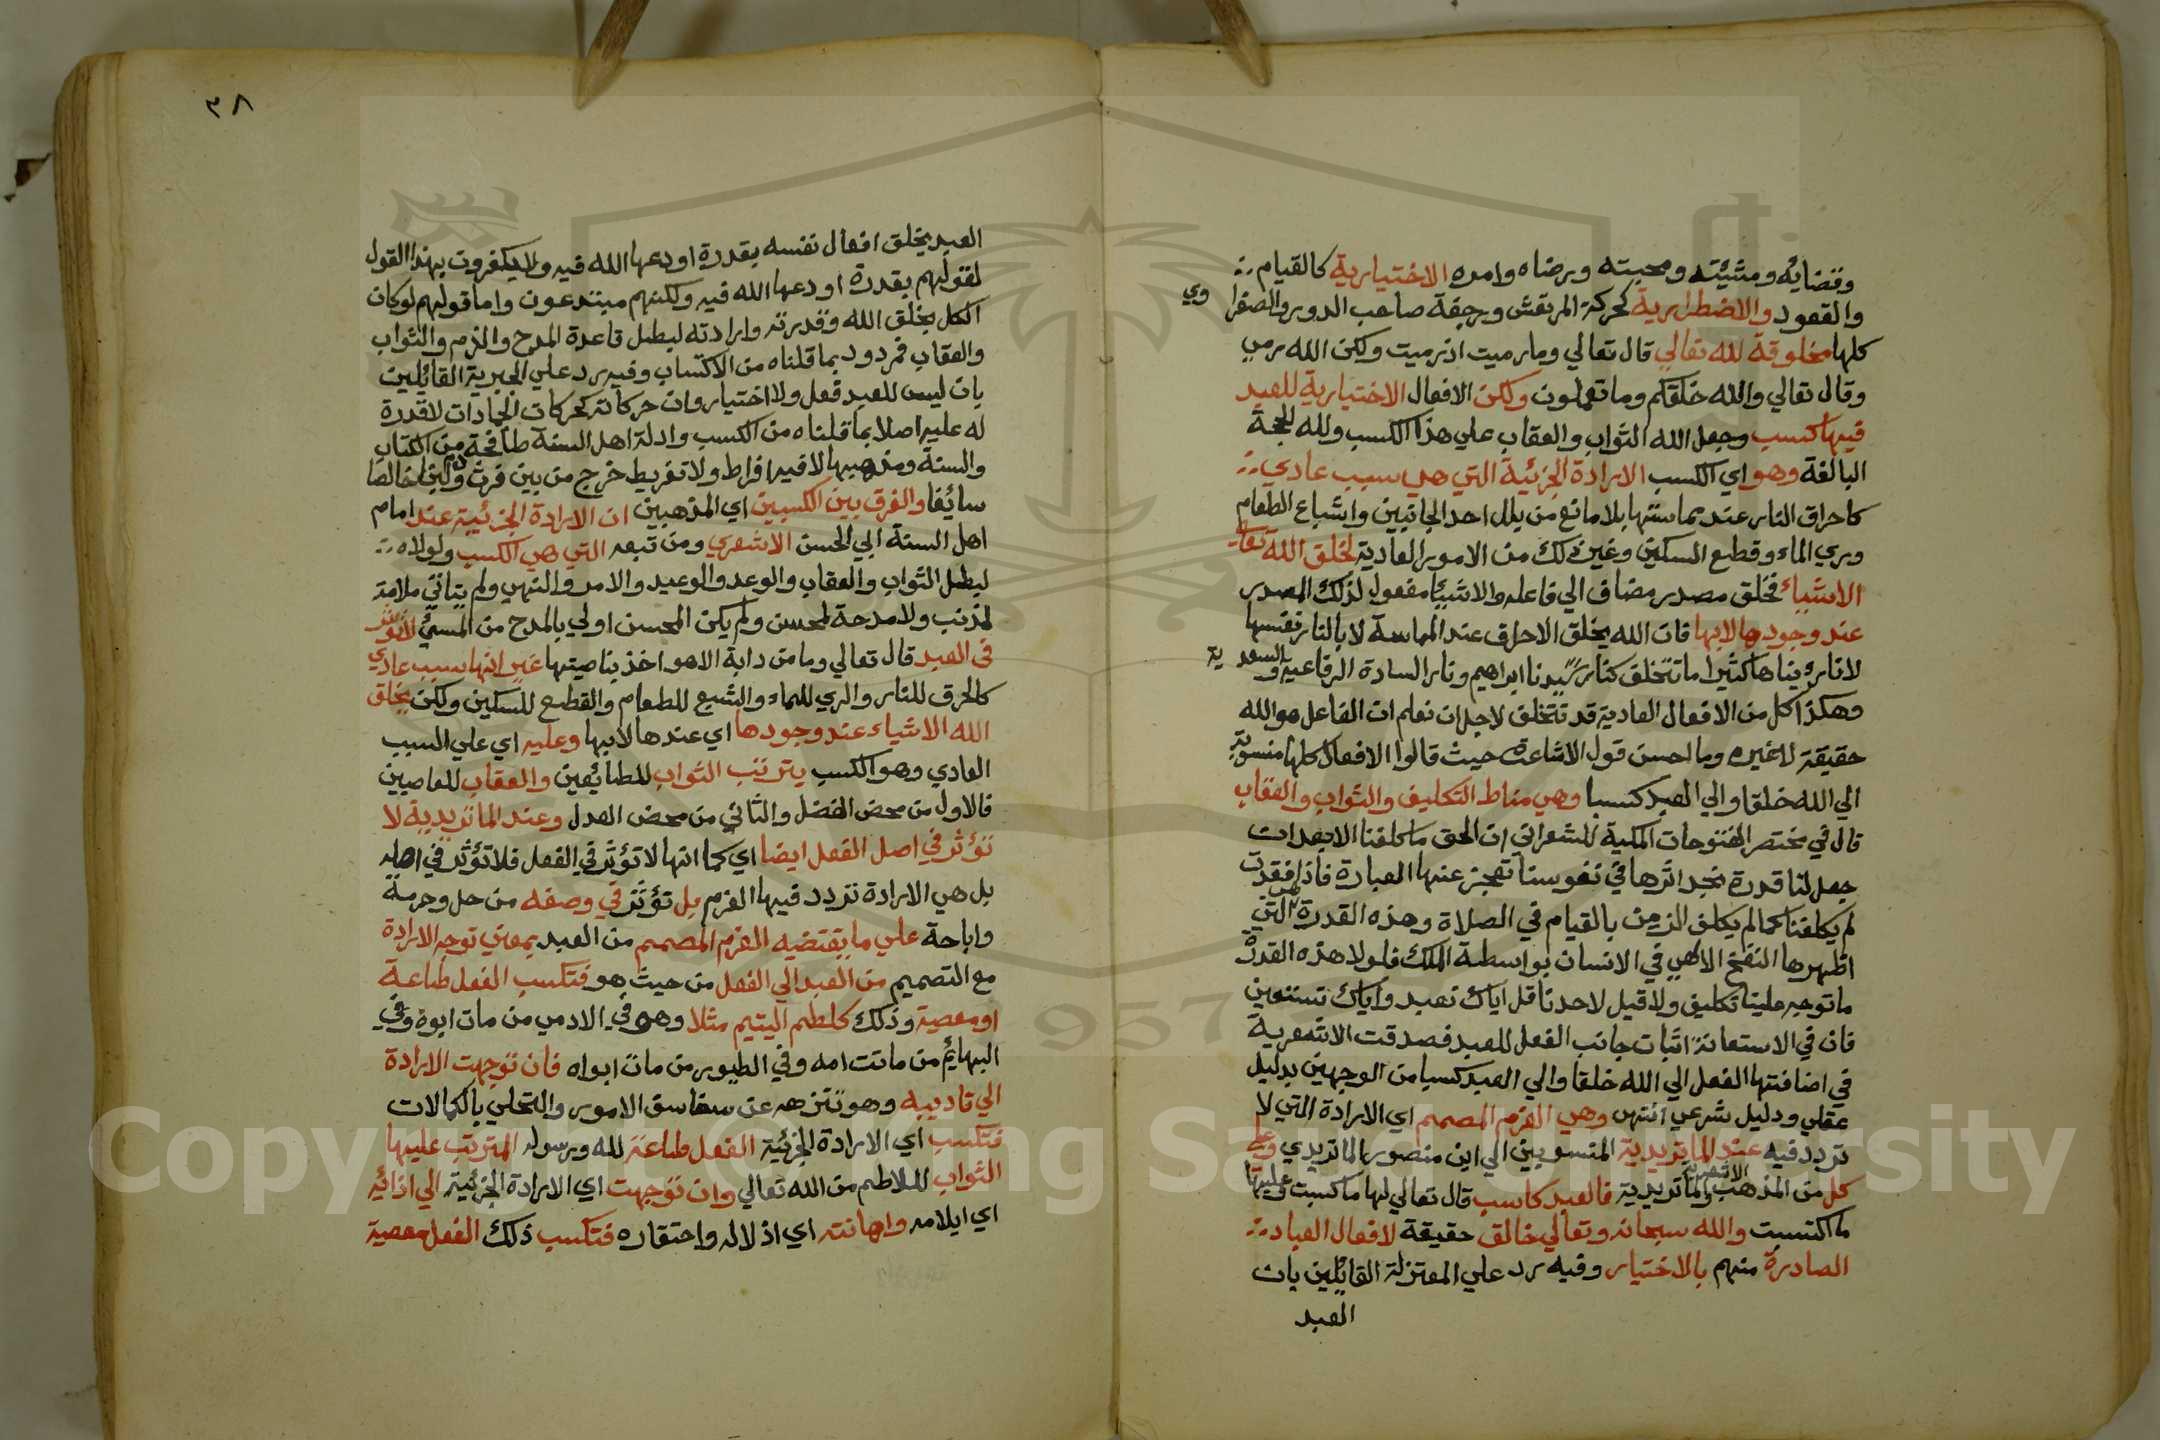 وقضايه ومشئيته ومحبته ورضاه وامره الاختيارية كالقيام
والقعود والاضطرارية كحركة المرتعش ورجفة صاحب الدور والصفرا وي
كلها مخلوقة لله تعالي قال تعالي وما رميت اذ رميت ولكن الله رمي
وقال تعالي والله خلقكم وما تعملون ولكن الافعال الاختيارية للعبد
فيها كسب وجعل الله الثواب والعقاب علي هذا الكسب ولله الحجة
البالغة وهو اي الكسب الارادة الجزئية التي هي سبب عادي
كاحراق النار عند مماستها بلا مانع من بلل احد الجانبين واشباع الطعام
وري الماء وقطع السكين وغير ذلك من الامور العادية لخلق الله تعالي
الاشياء فخلق مصدر مضاف الي فاعله والاشيئا مفعول لذلك المصدر
عند وجودها لابها فان الله يخلق الاحراق عند المماسة لا بالنار نفسها
لانا رئيناها كثيرا ما تتخلف كنار سيدنا ابراهيم ونار السادة الرفاعية والسعدية
وهكذا كل من الافعال العادية قد تتخلف لاجل ان نعلم ان الفاعل هو الله
حقيقة لا غيره وما احسن قول الاشاعرة حيث قالوا الافعال كلها منسوبة
الي الله خلقا والي العبد كسبا وهي مناط التكليف والثواب والعقاب
قال في مختصر الفتوحات المكية للشعراني ان الحق ما كلفنا الا بعد ان
جعل لنا قدرة نجد اثرها في نفوسنا تعجز عنها العبارة فاذا فقدت
لم يكلفنا كما لم يكلف الزمن بالقيام في الصلاة وهذه القدرة هي التي
اظهرها النفخ الالهي في الانسان بواسطة الملك فلولا هذه القدرة
ما توجه علينا تكليف ولا قيل لاحدنا قل اياك نعبد واياك نستعين
فان في الاستعانة اثبات جانب الفعل للعبد فصدقت الاشعرية
في اضافتها الفعل الي الله خلقا والي العبد كسبا من الوجهين بدليل
عقلي ودليل شرعي انتهي وهي العزم المصمم اي الارادة التي لا
تردد فيه عند الماتريدية المنسوبين الي ابن منصور الماتريدي وعلي
كل من المذهب الاشعرية والماتريدية فالعبد كاسب قال تعالي لها ما كسبت وعليها
ما اكتسبت والله سبحانه وتعالي خالق حقيقة لافعال العباد
الصادرة منهم بالاختيار وفيه رد علي المعتزلة القايلين بان
العبد
٣٨
العبد يخلق افعال نفسه بقدرة اودعها الله فيه ولا يكفرون بهذا القول
لقولهم بقدرة اودعها الله فيه ولكنهم مبتدعون واما قولهم لو كان
الكل يخلق الله وقدرته وارادته لبطل قاعدة المدح والذم والثواب
والعقاب فمردود بما قلناه من الاكتساب وفيه رد علي الجبرية القائلين
بان ليس للعبد فعل ولا اختيار وان حركاته كحركات الجمادات لا قدرة
له عليه اصلا بما قلناه من الكسب وادلة اهل السنة طافحة من الكتاب
والسنة ومذهبها لا فيه افراط ولا تفريط خرج من بين فرث ودم لبنا خالصا
سائغا والفرق بين الكسبين اي المذهبين ان الارادة الجزئية عند امام
اهل السنة ابي الحسن الاشعري ومن تبعه التي هي الكسب ولولاه
لبطل الثواب والعقاب والوعد والوعيد والامر والنهي ولم يتاتي ملامة
لمذنب ولا مدحة لمحسن ولم يكن المحسن اولي بالمدح من المسيئ لا تؤثر
في العبد قال تعالي وما من دابة الا هو اخذ بناصيتها غير انها سبب عادي
كالحرق للنار والري للماء والشبع للطعام والقطع للسكين ولكن يخلق
الله الاشياء عند وجودها اي عندها لابها وعليه اي علي السبب
العادي وهو الكسب يترتب الثواب للطائعين والعقاب للعاصيين
فالاول من محض الفضل والثاني من محض العدل وعند الماتريدية لا
تؤثر في اصل الفعل ايضا اي كما انها لا تؤثر في الفعل فلا تؤثر في اصله
بل هي الارادة تردد فيها العزم بل تؤثر في وصفه من حل وحرمة
واباحة علي ما يقتضيه العزم المصمم من العبد بمعني توجه الارادة
مع التصميم من العبد الي الفعل من حيث هو فتكسب الفعل طاعة
او معصية وذلك كلطم اليتيم مثلا وهو في الادمي من مات ابوه وفي
البهائم من ماتت امه وفي الطيور من مات ابواه فان توجهت الارادة
الي تاديبه وهو تنزهه عن سفاسف الامور والتحلي بالكمالات
فتكسب اي الارادة الجزئية الفعل طاعة لله ورسوله المترتب عليها
الثواب لللاطم من الله تعالي وان توجهت اي الارادة الجزئية الي اذائه
اي ايلامه واهانته اي اذلاله واحتقاره فتكسب ذلك الفعل معصية
1957
Copyright © King Saud University